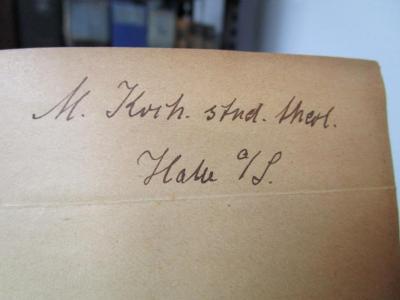 M. Koch. stud. theol.
Halle a/S.